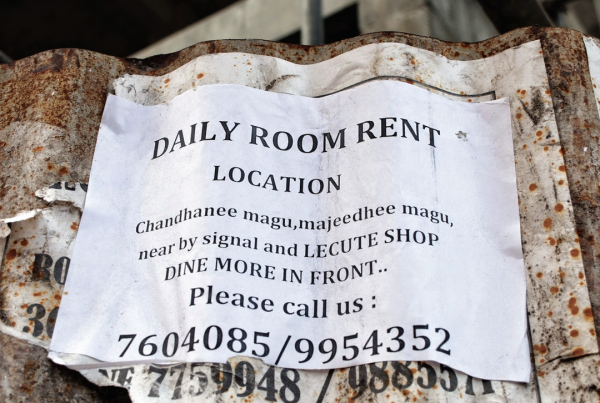 DAILY ROOM RENT
LOCATION
Chandhanee magu,majeedhee magu,
near by signal and LECUTE SHOP
DINE MORE IN FRONT..
Please call us :
7604085/9954352
7759948 /